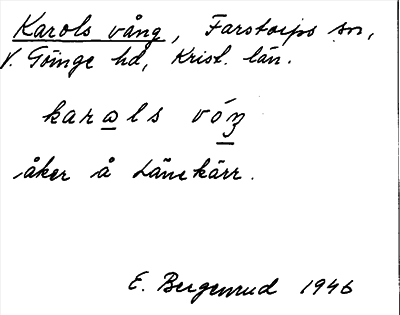 Karols vång, Farstorps sn,
V. Göinge hd, Krist. län.
karωls vóʒ
åker å Länskärr.
E. Bergenrud 1946